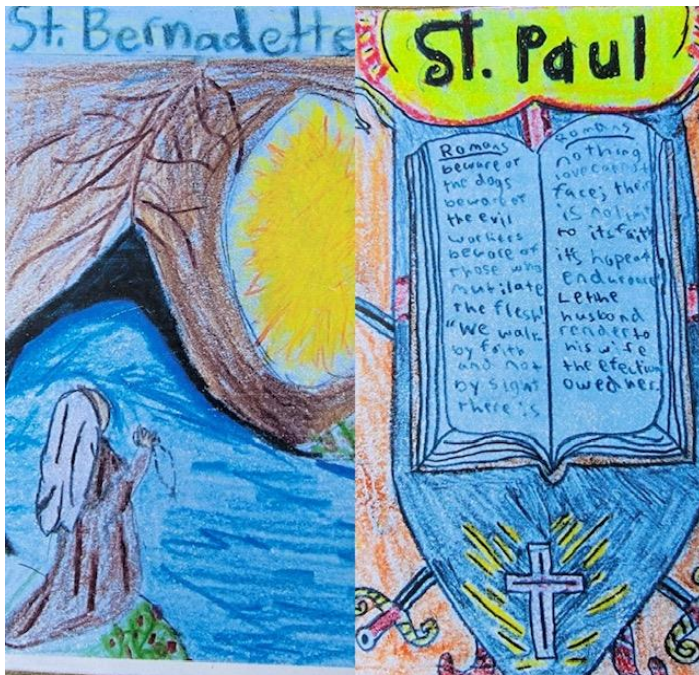 St. Bernadette
St. Paul
Romans
beware of
the dogs
beware of
the evil
workers
beware of
those who
mutilate
the flesh"
"We walk
by faith
and not
by sight
there is
Romans
nothing
love cannot
face; their
is no limit
to its faith
its hope
Let the
husband
render to
his wife
the efection
owed her.